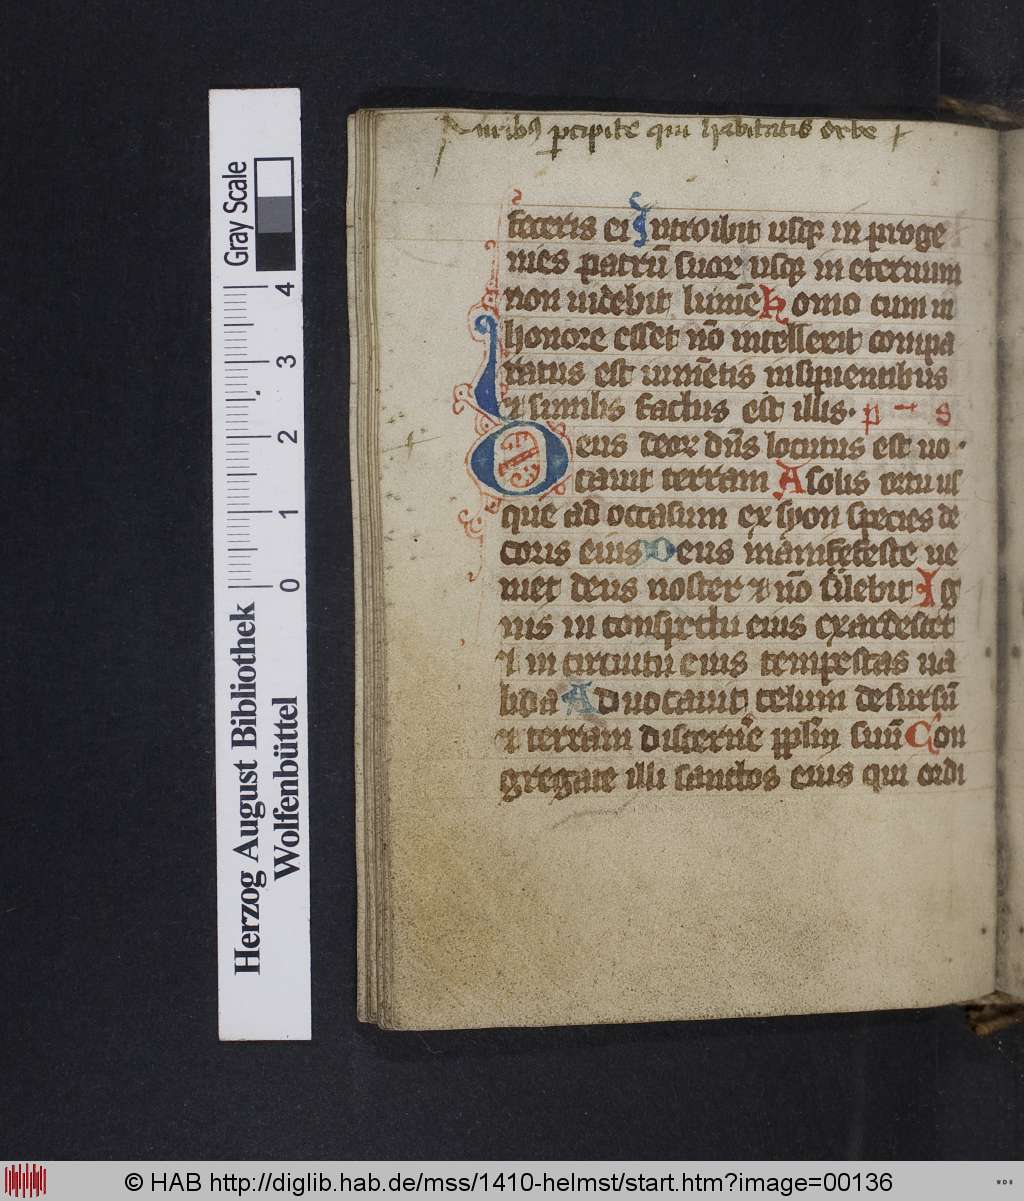 Auribꝰ ꝑcipite qui habitatis orbe
feceris ei Introibit usqꝫ in proge
nies patrū suoꝝ usqꝫ in eternum
non uidebit lumē Homo cum in
honore esset nō intellexit compa
ratus est iumētis insipientibus
⁊ similis factus est illis. p s
Deus deoꝝ dn̄s locutus est uo
cauit terram A solis ortu us
que ad occasum ex syon species de
coris eius Deus manifeste ue
niet deus noster ⁊ nō silebit Ig
nis in conspectu eius exardescet
⁊ in circuitu eius tempestas ua
lida Aduocauit celum desursū
⁊ terram discerne pplm̄ suū Con
gregate illi sanctos eius qui ordi
Gray Scale
4
3
2
1
0
Herzog August Bibliothek
Wolfenbüttel
© HAB http://diglib.hab.de/mss/1410-helmst/start.htm?image=00136